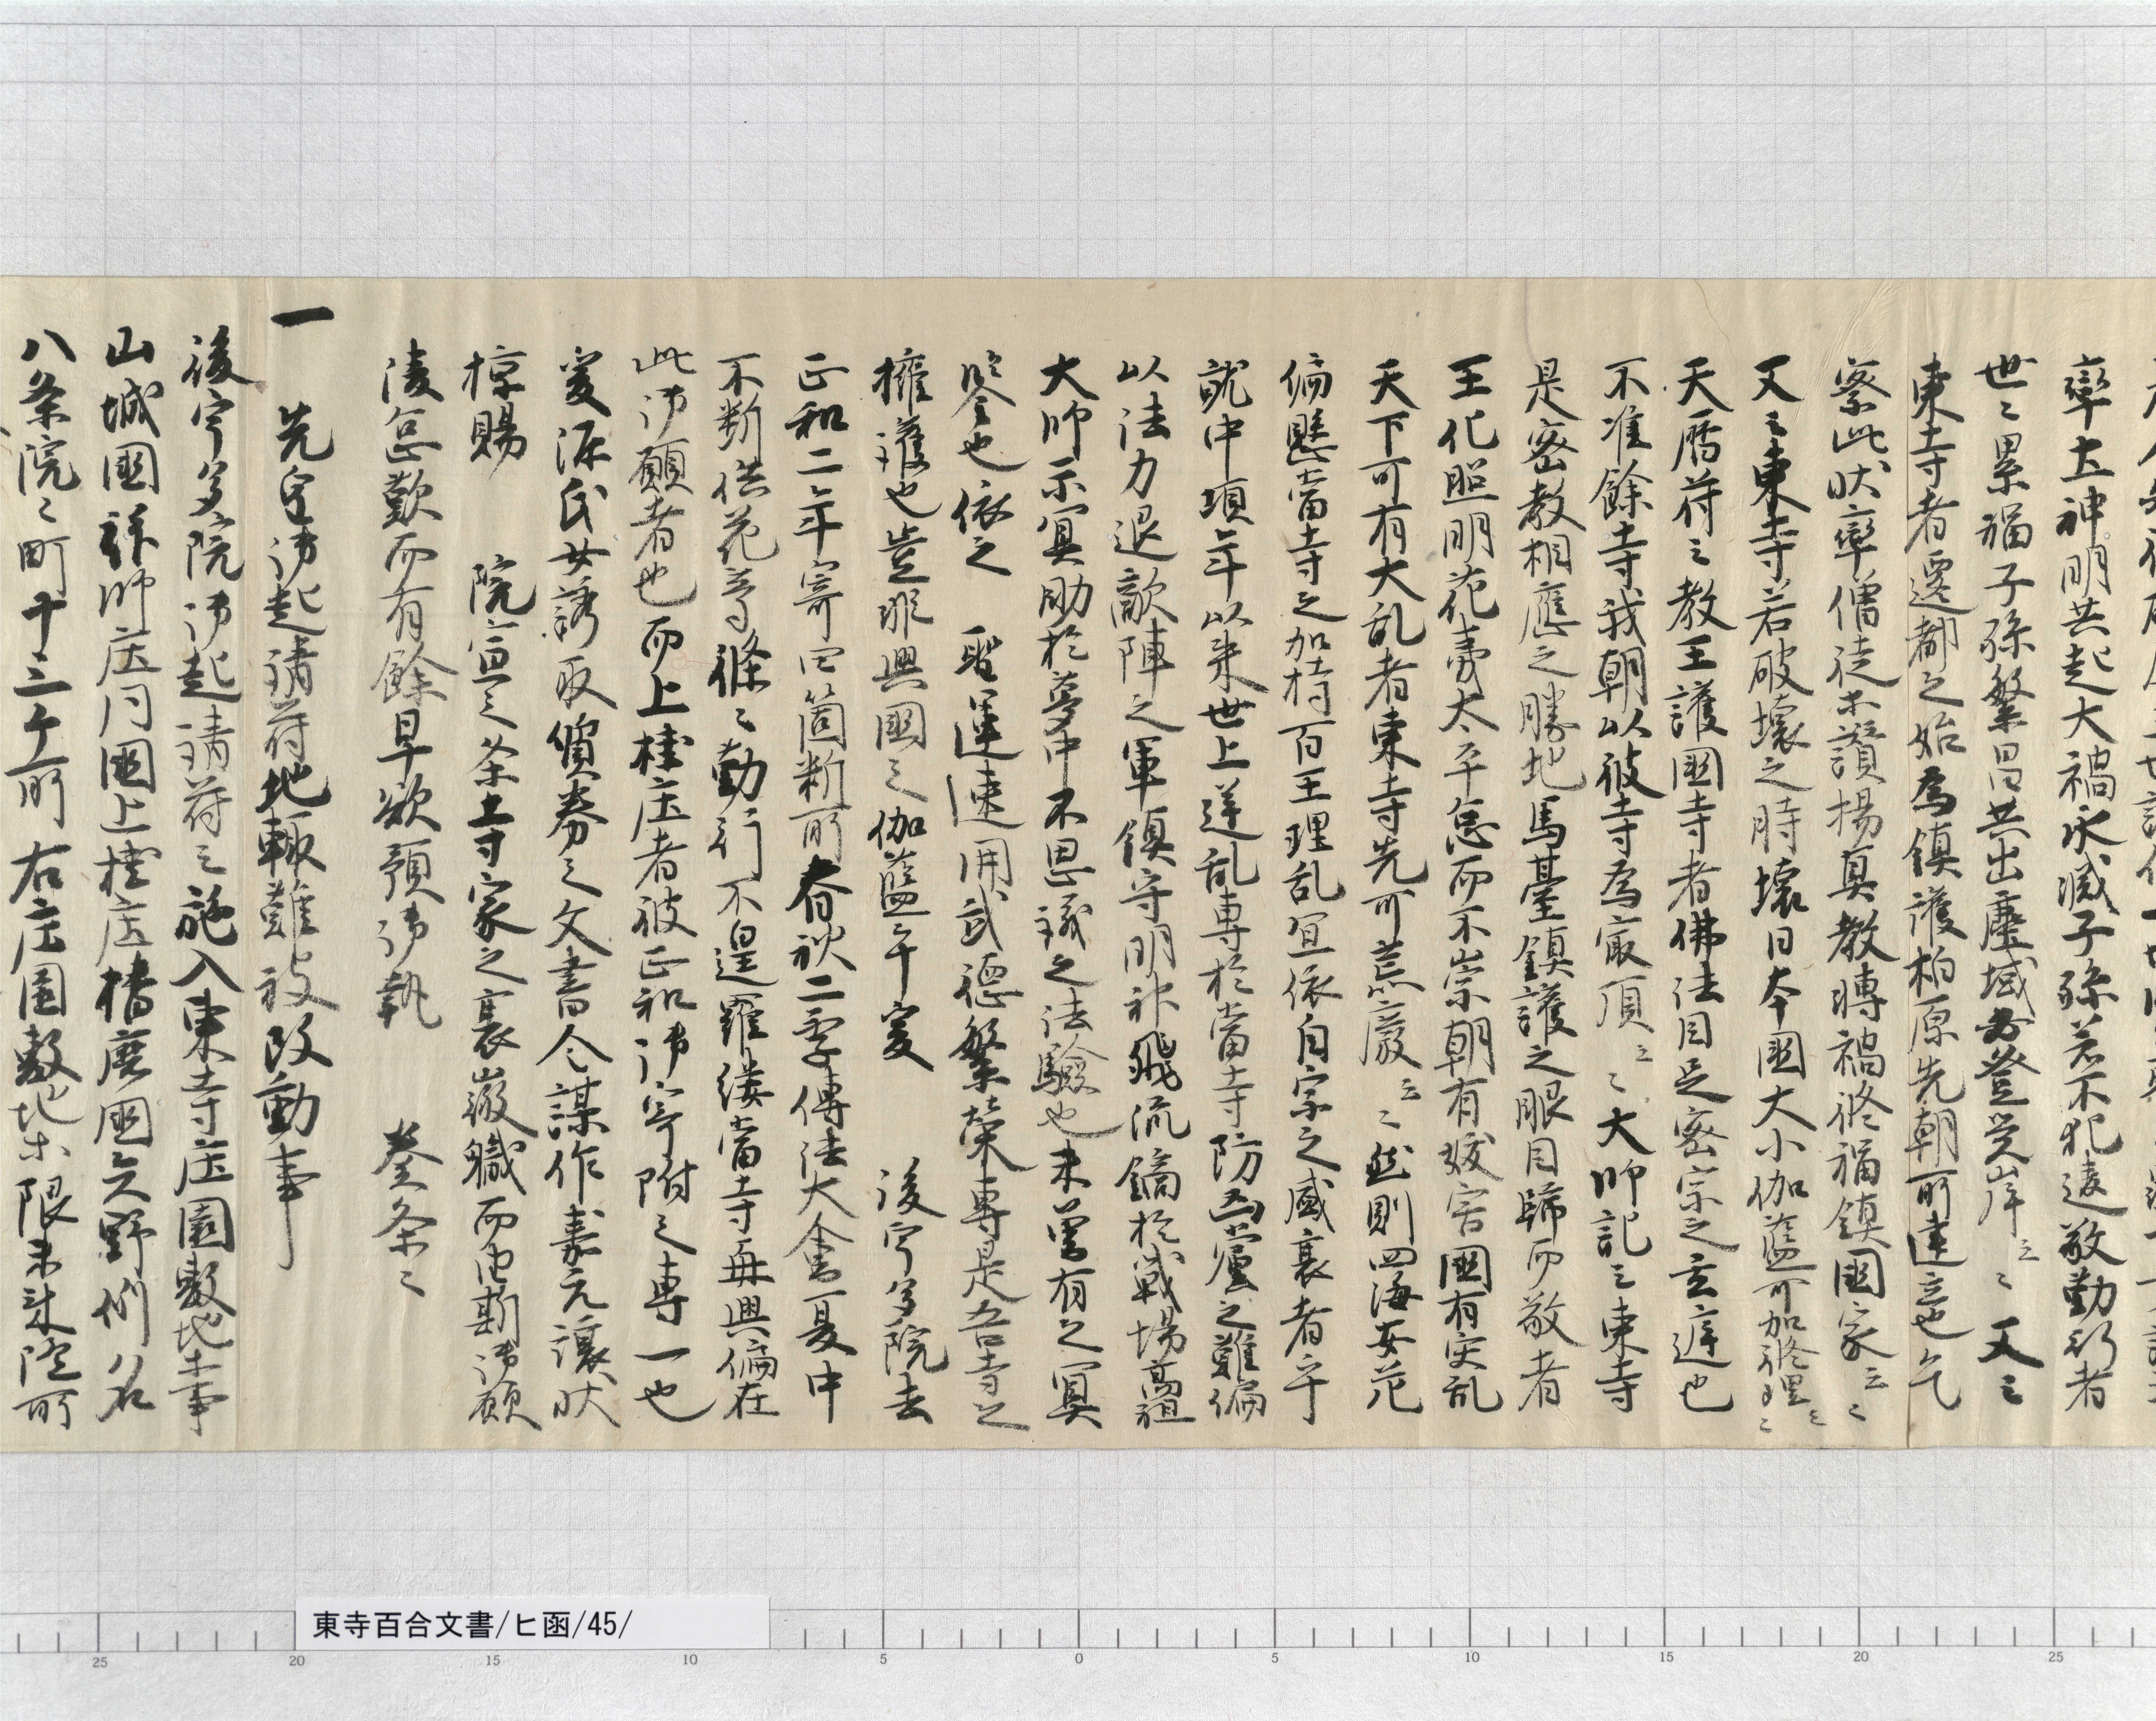 率土神明共起大禍永滅子孫若不犯違敬勤行者
世〻累福子孫繁昌共出塵域安登覚岸云〻又云
東寺者遷都之始為鎮護柏原先朝所建立也乞
察此状率僧徒等讃揚真教転禍終福鎮国家云〻
又云東寺若破壊之時壊日本国大小伽藍可加修理云〻
天暦符云教王護国寺者佛法目足密宗之玄遅也
不准餘寺我朝以彼寺為最頂云〻大師記云東寺
是密教相應之勝地馬臺鎮護之眼目歸而敬者
王化照明花夷太平怠而不崇朝有妖害國有災乱
天下可有大乱者東寺先可荒廢云〻然則四海安危
偏懸當寺之加持百王理乱宜依自宗之盛衰者乎
就中頃年以来世上逆乱専於當寺防凶黨之難偏
以法力退敵陣之軍鎮守明神飛流鏑於戦場高祖
大師示冥助於夢中不思議之法驗也未曽有之冥
鑒也依之 聖運速開武徳繁榮專是吾寺之
擁護也豈非興國之伽藍乎爰 後宇多院去
正和二年寄四箇所春秋二季傳法大會夏中
不断供花等條〻勤行不遑羅縷當寺再興偏在
此御願者也而上桂庄者彼正和御寄附之專一也
爰源氏女誘取質券之文書令謀作嘉元譲状
掠賜 院宣之条寺家之衰微職而由斯御願
凌怠歎而有餘早欲預御執 奏矣〻
一 先皇御起請符地輙難被改動事
後宇多院御起請符云施入東寺庄園敷地等事
山城國拝師庄同國上桂庄播磨國矢野例名
八条院〻町十三ケ所右庄園敷地等限未来際所
東寺百合文書/ヒ函/45/
25 20 15 10 5 0 5 10 15 20 25